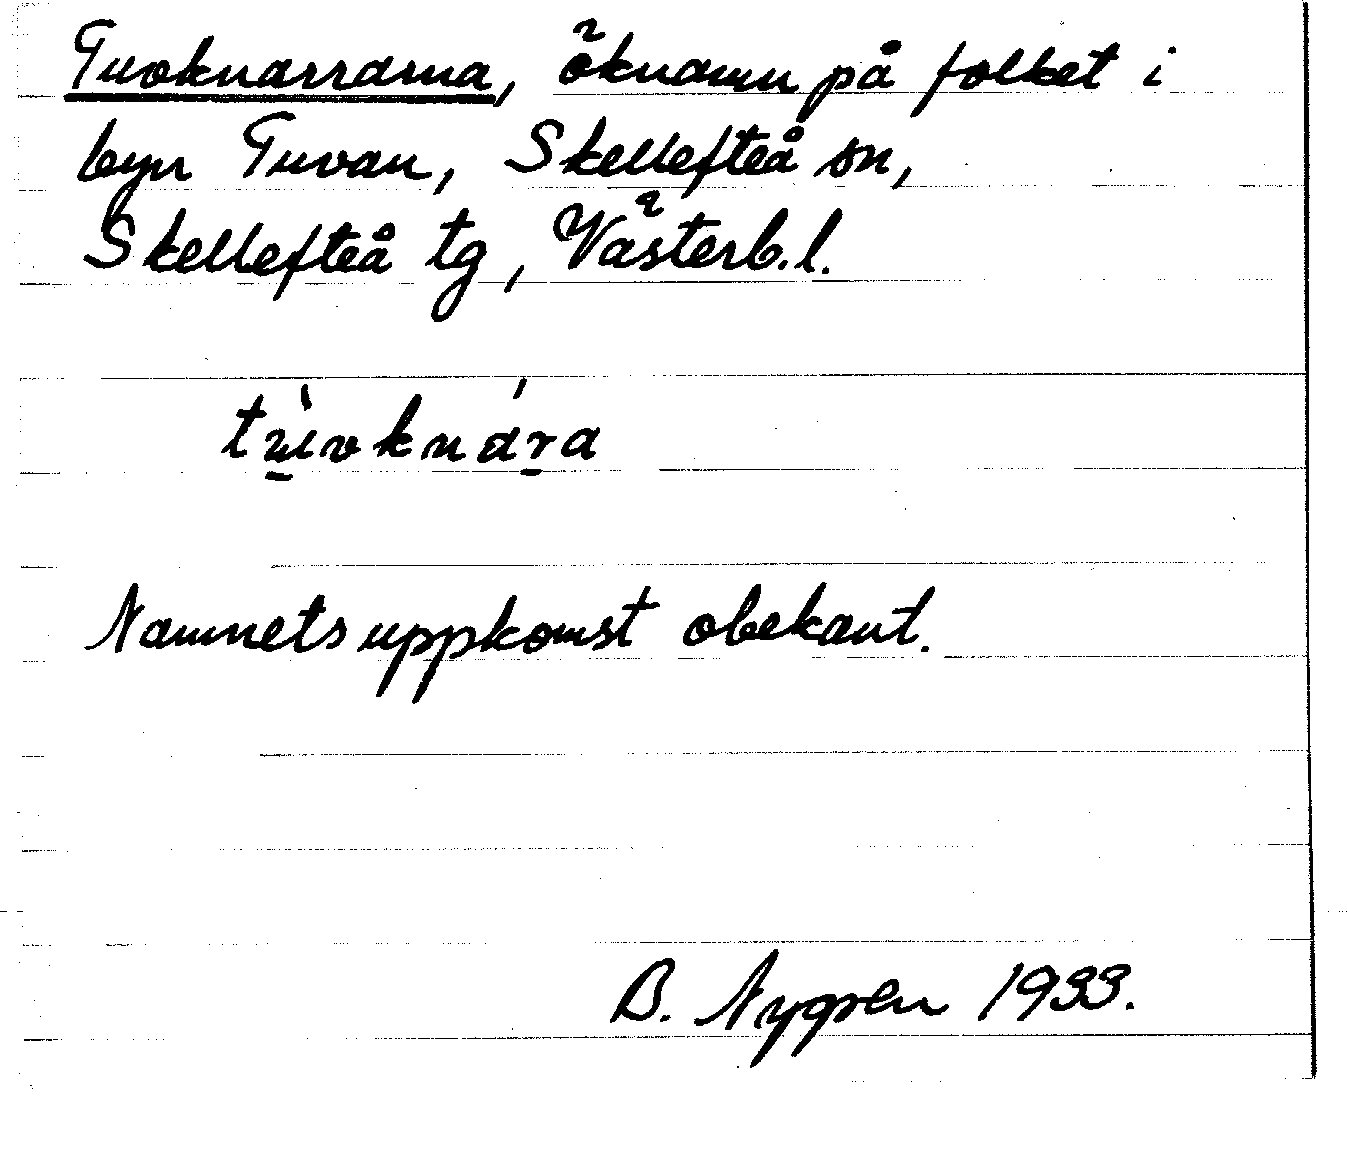 Tuvknarrarna, öknamn på folket i
byn Tuvan, Skellefteå sn,
Skellefteå tg, Västerb. l.
Namnets uppkomst obekant.
B. Nygren 1933.